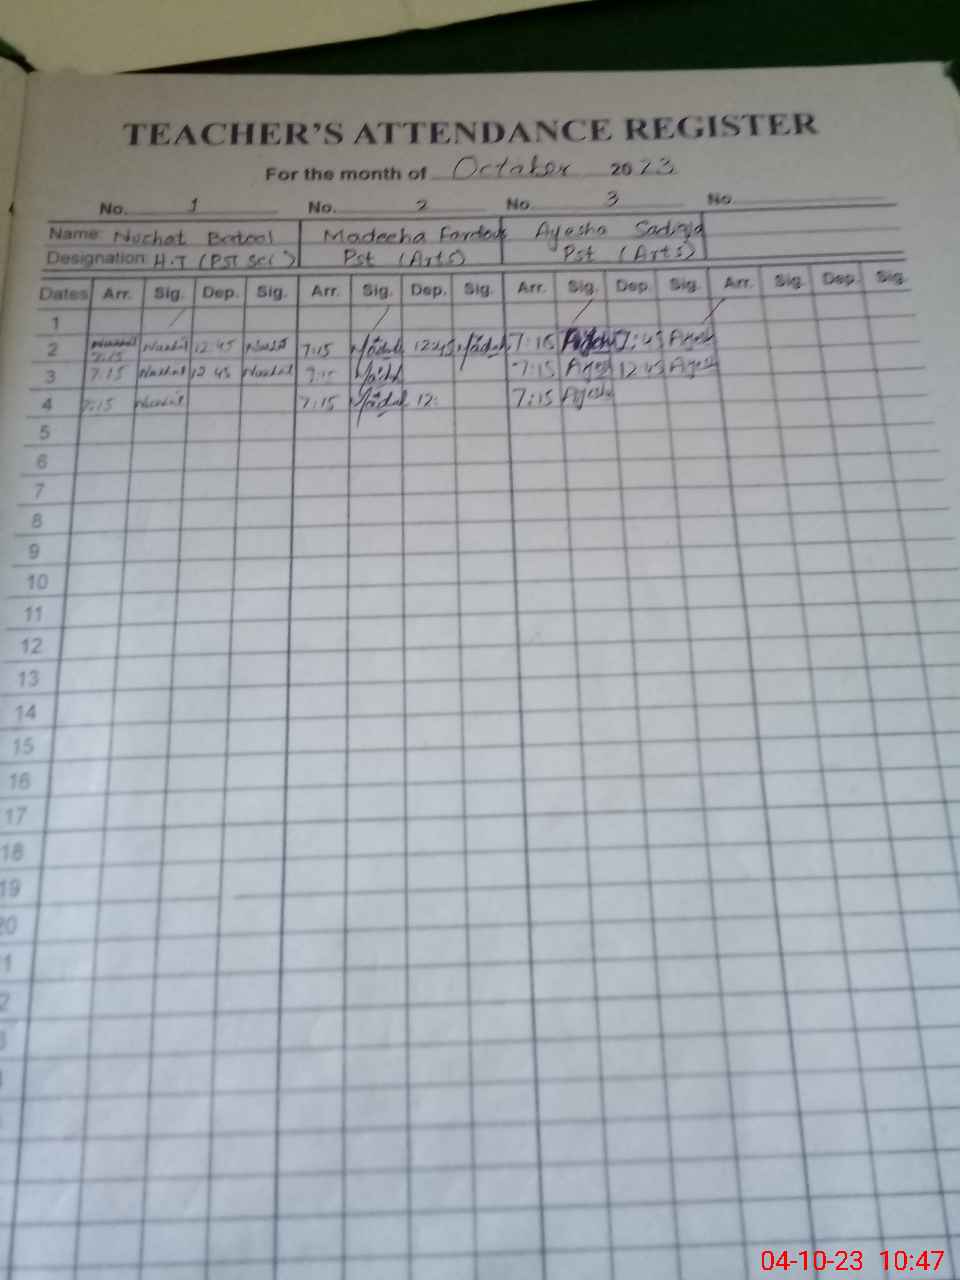 TEACHER'S ATTENDANCE REGISTER
For the month of October 2023
No. 1 No. 2 No. 3 No
Name: Nuzhat Batool Madeeha Fardous Ayesha Sadiqa
Designation: H.T (PST Sci) Pst (Arts) Pst (Arts)
Dates Arr. Sig. Dep. Sig. Arr. Sig. Dep. Sig. Arr. Sig. Dep. Sig. Arr. Sig. Dep. Sig.
1
2 7:15 Nuzhat 12:45 Nuzhat 7:15 12:45 7:15 Ayesh :45 Ayesh
3 7:15 Nuzhat 12 45 Nuzhat 7:15 7:15 Ayesh 12 45 Ayesh
4 7:15 Nuzhat 7:15 12: 7:15 Ayesha
5
6
7
8
9
10
11
12
13
14
15
16
17
18
19
20
1
2
3
04-10-23 10:47